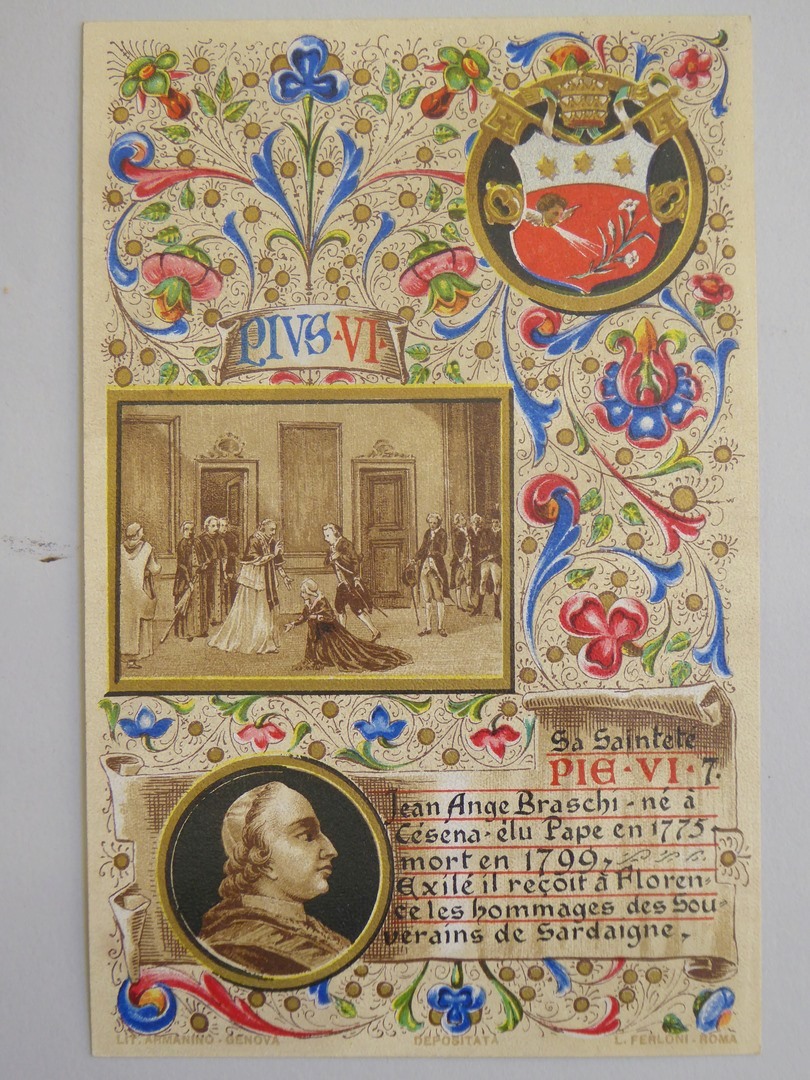 PIVS·VI·
Sa Saintete
PIE·VI·7.
Jean Ange Braschi-né à
Césena-élu Pape en 1775
mort en 1799,
Exilé il reçoit à Floren-
ce les hommages des Sou-
verains de Sardaigne,
LIT. ARMANINO - GENOVA
DEPOSITATA
L. FERLONI - ROMA